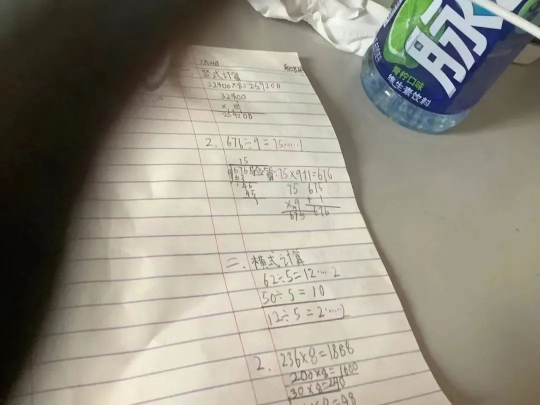 竖式计算
32400×8=259200
32400
× 8
259200
2. 676÷9=75……1
75
9 676
63
46
45
1
75×9+1=676
75 675
×9 + 1
675 676
二、横式计算
62÷5=12……2
50÷5=10
12÷5=2……2
2. 236×8=1888
200×8=1600
30×8=240
脉
青柠口味
维生素饮料